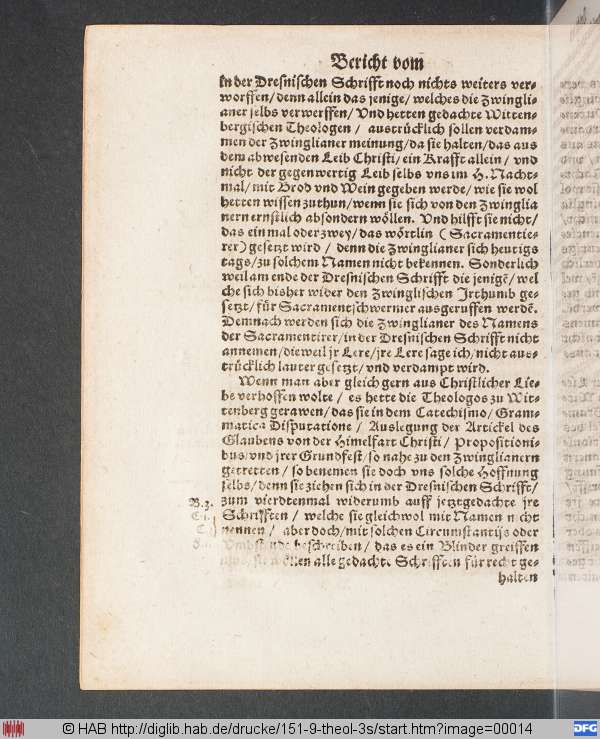 Bericht vom
in der Dresnischen Schrifft noch nichts weiters ver-
worffen/ denn allein das jenige/ welches die Zwingli-
aner selbs verwerffen/ Vnd hetten gedachte Witten-
bergischen Theologen / austrücklich sollen verdam-
men der Zwinglianer meinung/ da sie halten/ das aus
dem abwesenden Leib Christi/ ein Krafft allein / vnd
nicht der gegenwertig Leib selbs vns im H. Nacht-
mal/ mit Brod vnd Wein gegeben werde/ wie sie wol
hetten wissen zuthun/ wenn sie sich von den Zwinglia
nern ernstlich absondern wöllen. Vnd hilfft sie nicht/
das ein mal oder zwey/ das wörtlin ( Sacramentie-
rer) gesetzt wird / denn die Zwinglianer sich heutigs
tags/ zu solchem Namen nicht bekennen. Sonderlich
weil am ende der Dresnischen Schrifft die jenigē/ wel
che sich bisher wider den Zwinglischen Irthumb ge-
setzt/ für Sacramentschwermer ausgeruffen werdē.
Demnach werden sich die Zwinglianer des Namens
der Sacramentirer/ in der Dresnischen Schrifft nicht
annemen/ dieweil jr Lere/ jre Lere sage ich/ nicht aus-
trücklich lauter gesetzt/ vnd verdampt wird.
Wenn man aber gleich gern aus Christlicher Lie-
be verhoffen wolte / es hette die Theologos zu Wit-
tenberg gerawen/ das sie in dem Catechismo/ Gram-
matica Disputatione / Auslegung der Artickel des
Glaubens von der Himelfart Christi/ Propositioni-
bus/ vnd jrer Grundfest/ so nahe zu den Zwinglianern
getretten / so benemen sie doch vns solche Hoffnung
selbs/ denn sie ziehen sich in der Dresnischen Schrifft/
B. 3. zum vierdtenmal widerumb auff jetztgedachte jre
Schrifften / welche sie gleichwol mit Namen nicht
C. nennen / aber doch/ mit solchen Circumstantijs oder
Vmbstende beschreiben/ das es ein Blinder greiffen
wöllen alle gedachte Schrifften für recht ge-
halten
© HAB http://diglib.hab.de/drucke/151-9-theol-3s/start.htm?image=00014
DFG